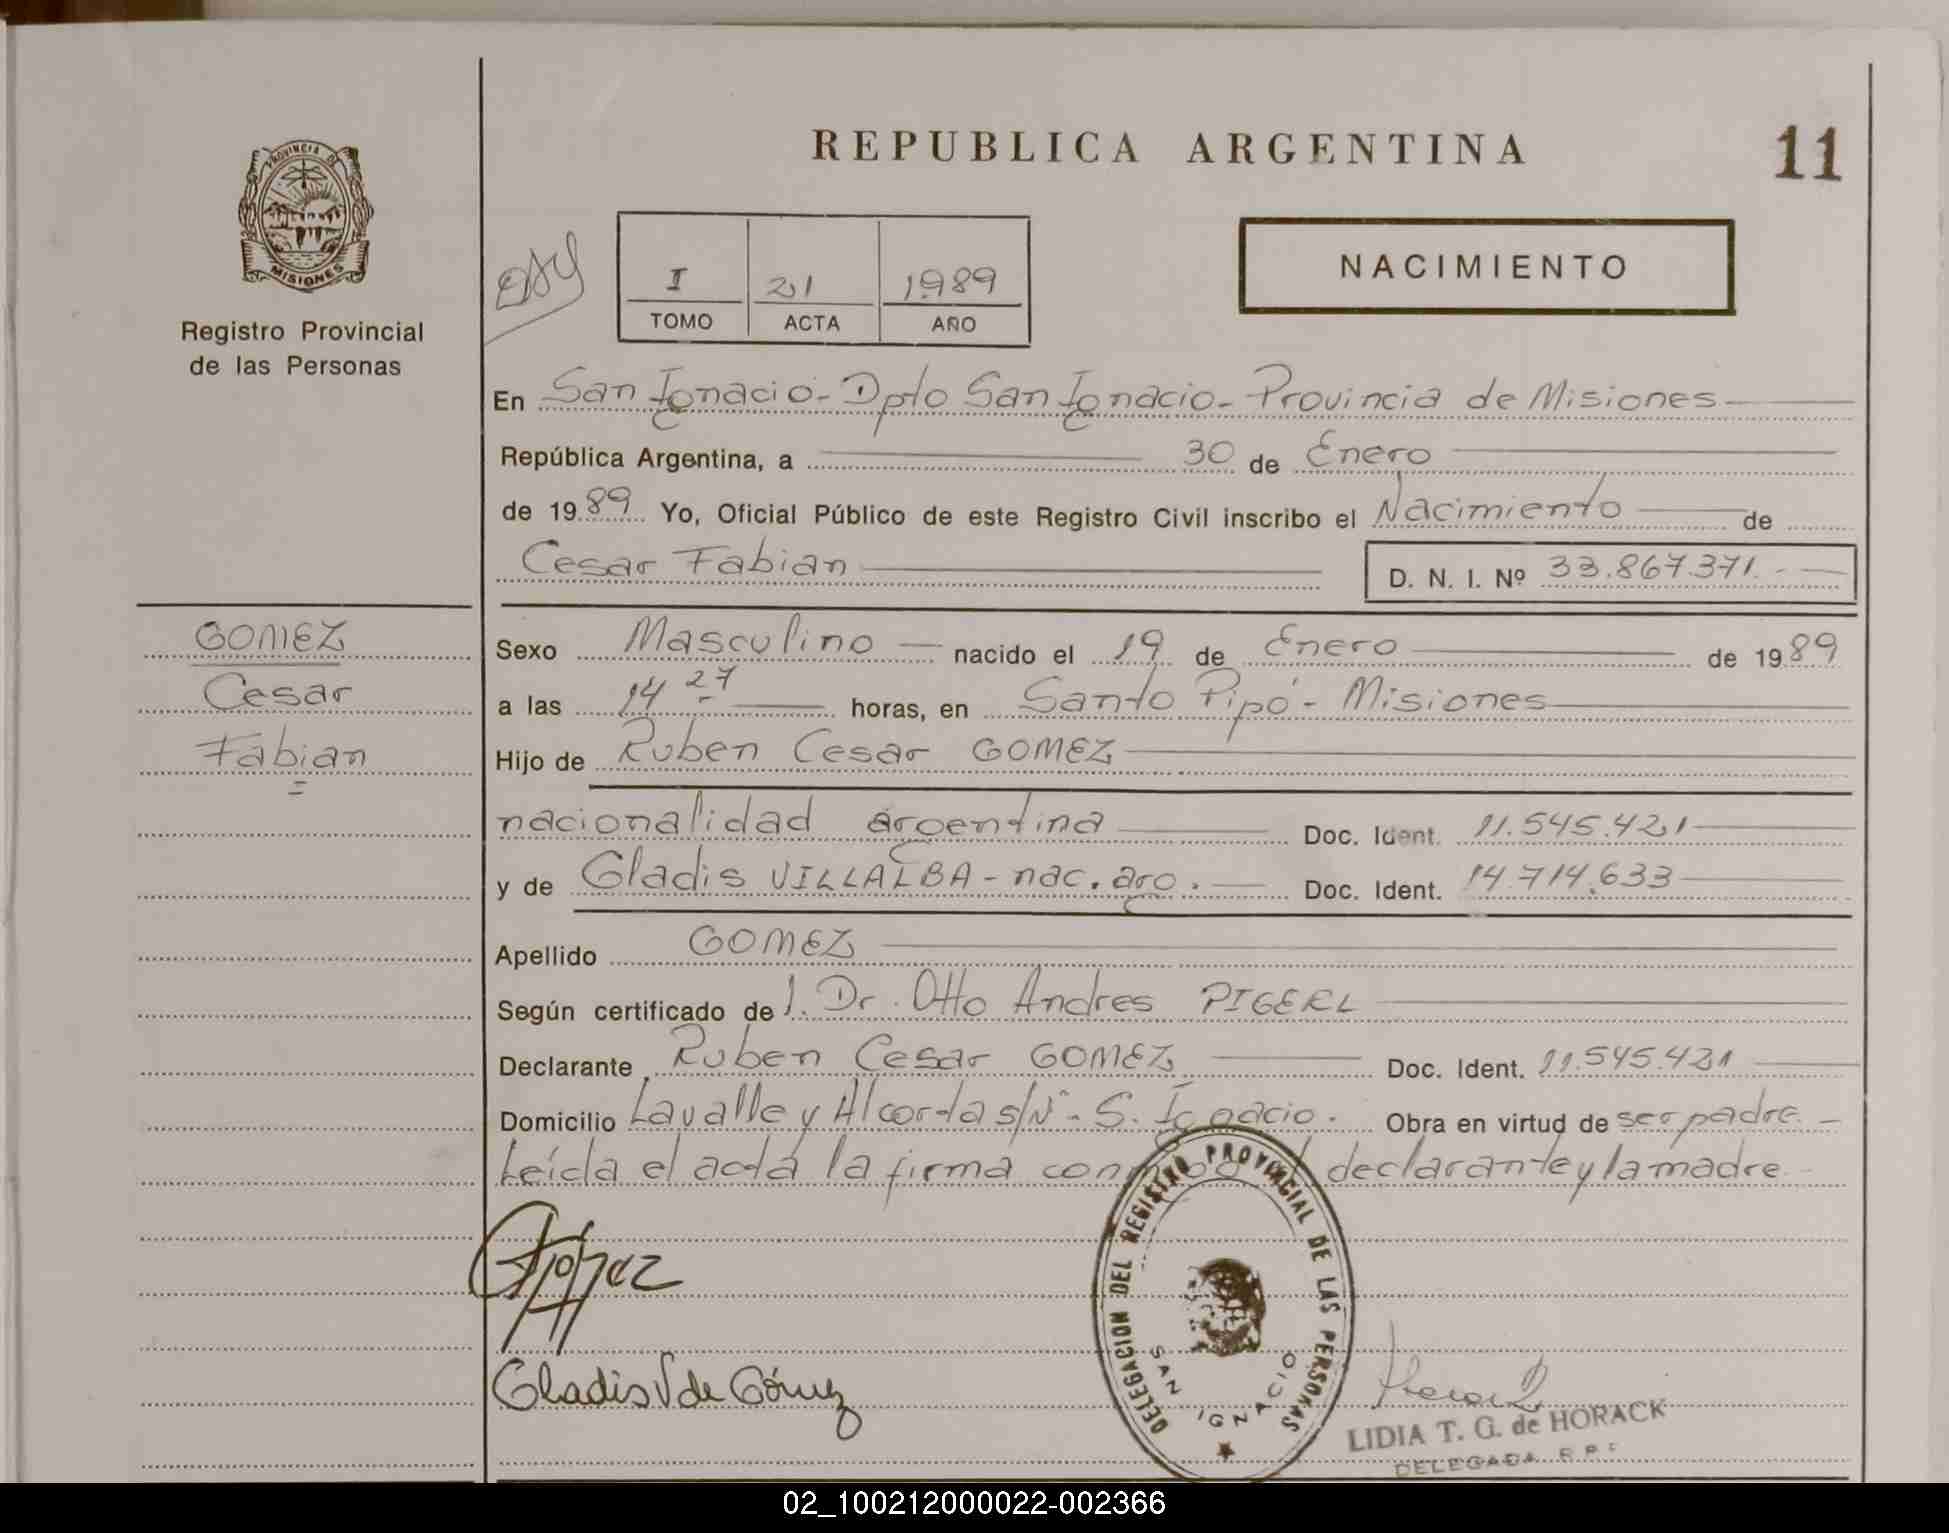 REPUBLICA ARGENTINA
11
PROVINCIA DE
MISIONES
Registro Provincial
de las Personas
I 21 1989
TOMO ACTA AÑO
NACIMIENTO
En San Ignacio - Dpto San Ignacio - Provincia de Misiones
República Argentina, a 30 de Enero
de 1989 Yo, Oficial Público de este Registro Civil inscribo el Nacimiento de
Cesar Fabian D. N. I. Nº 33.867.371.-
GOMEZ
Cesar
Fabian
Sexo Masculino nacido el 19 de Enero de 1989
a las 14 27 horas, en Santo Pipó - Misiones
Hijo de Ruben Cesar GOMEZ
nacionalidad argentina Doc. Ident. 11.545.421
y de Gladis VILLALBA - nac. arg. Doc. Ident. 14.714.633
Apellido GOMEZ
Según certificado de l. Dr. Otto Andres PIGERL
Declarante Ruben Cesar GOMEZ Doc. Ident. 11.545.421
Domicilio Lavalle y Alcorta s/Nº - S. Ignacio. Obra en virtud de ser padre. -
Leída el acta la firma conmigo el declarante y la madre. -
Gladis V de Gómez
DELEGACION DEL REGISTRO PROVINCIAL DE LAS PERSONAS
SAN IGNACIO
LIDIA T. G. de HORACK
DELEGADA R.P.
02_100212000022-002366